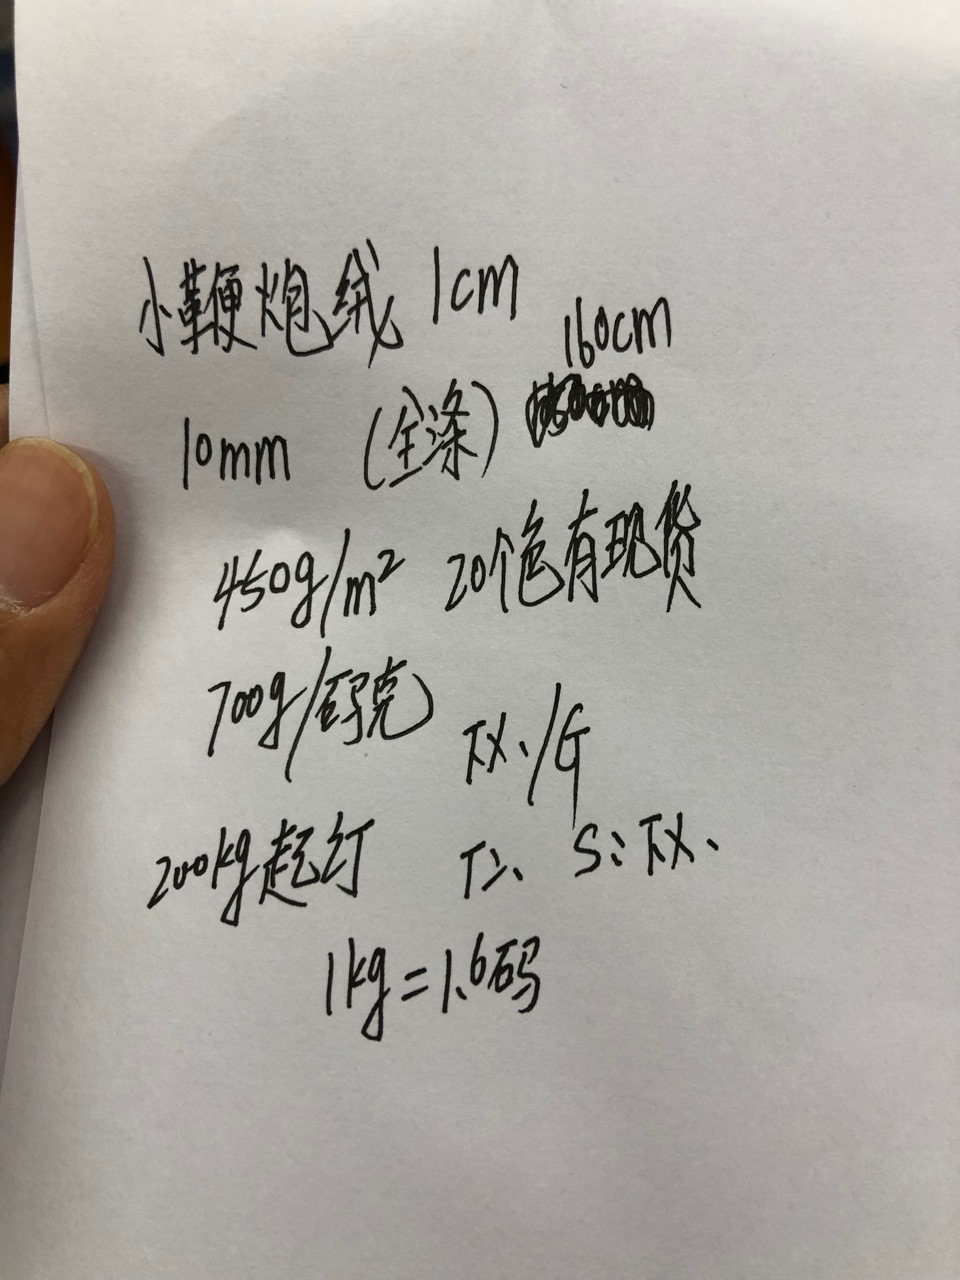 小鞭炮绒 1cm
160cm
10mm (全涤)
450g/m² 20个色有现货
700g/码克
200kg起订
S:
1kg=1.6码